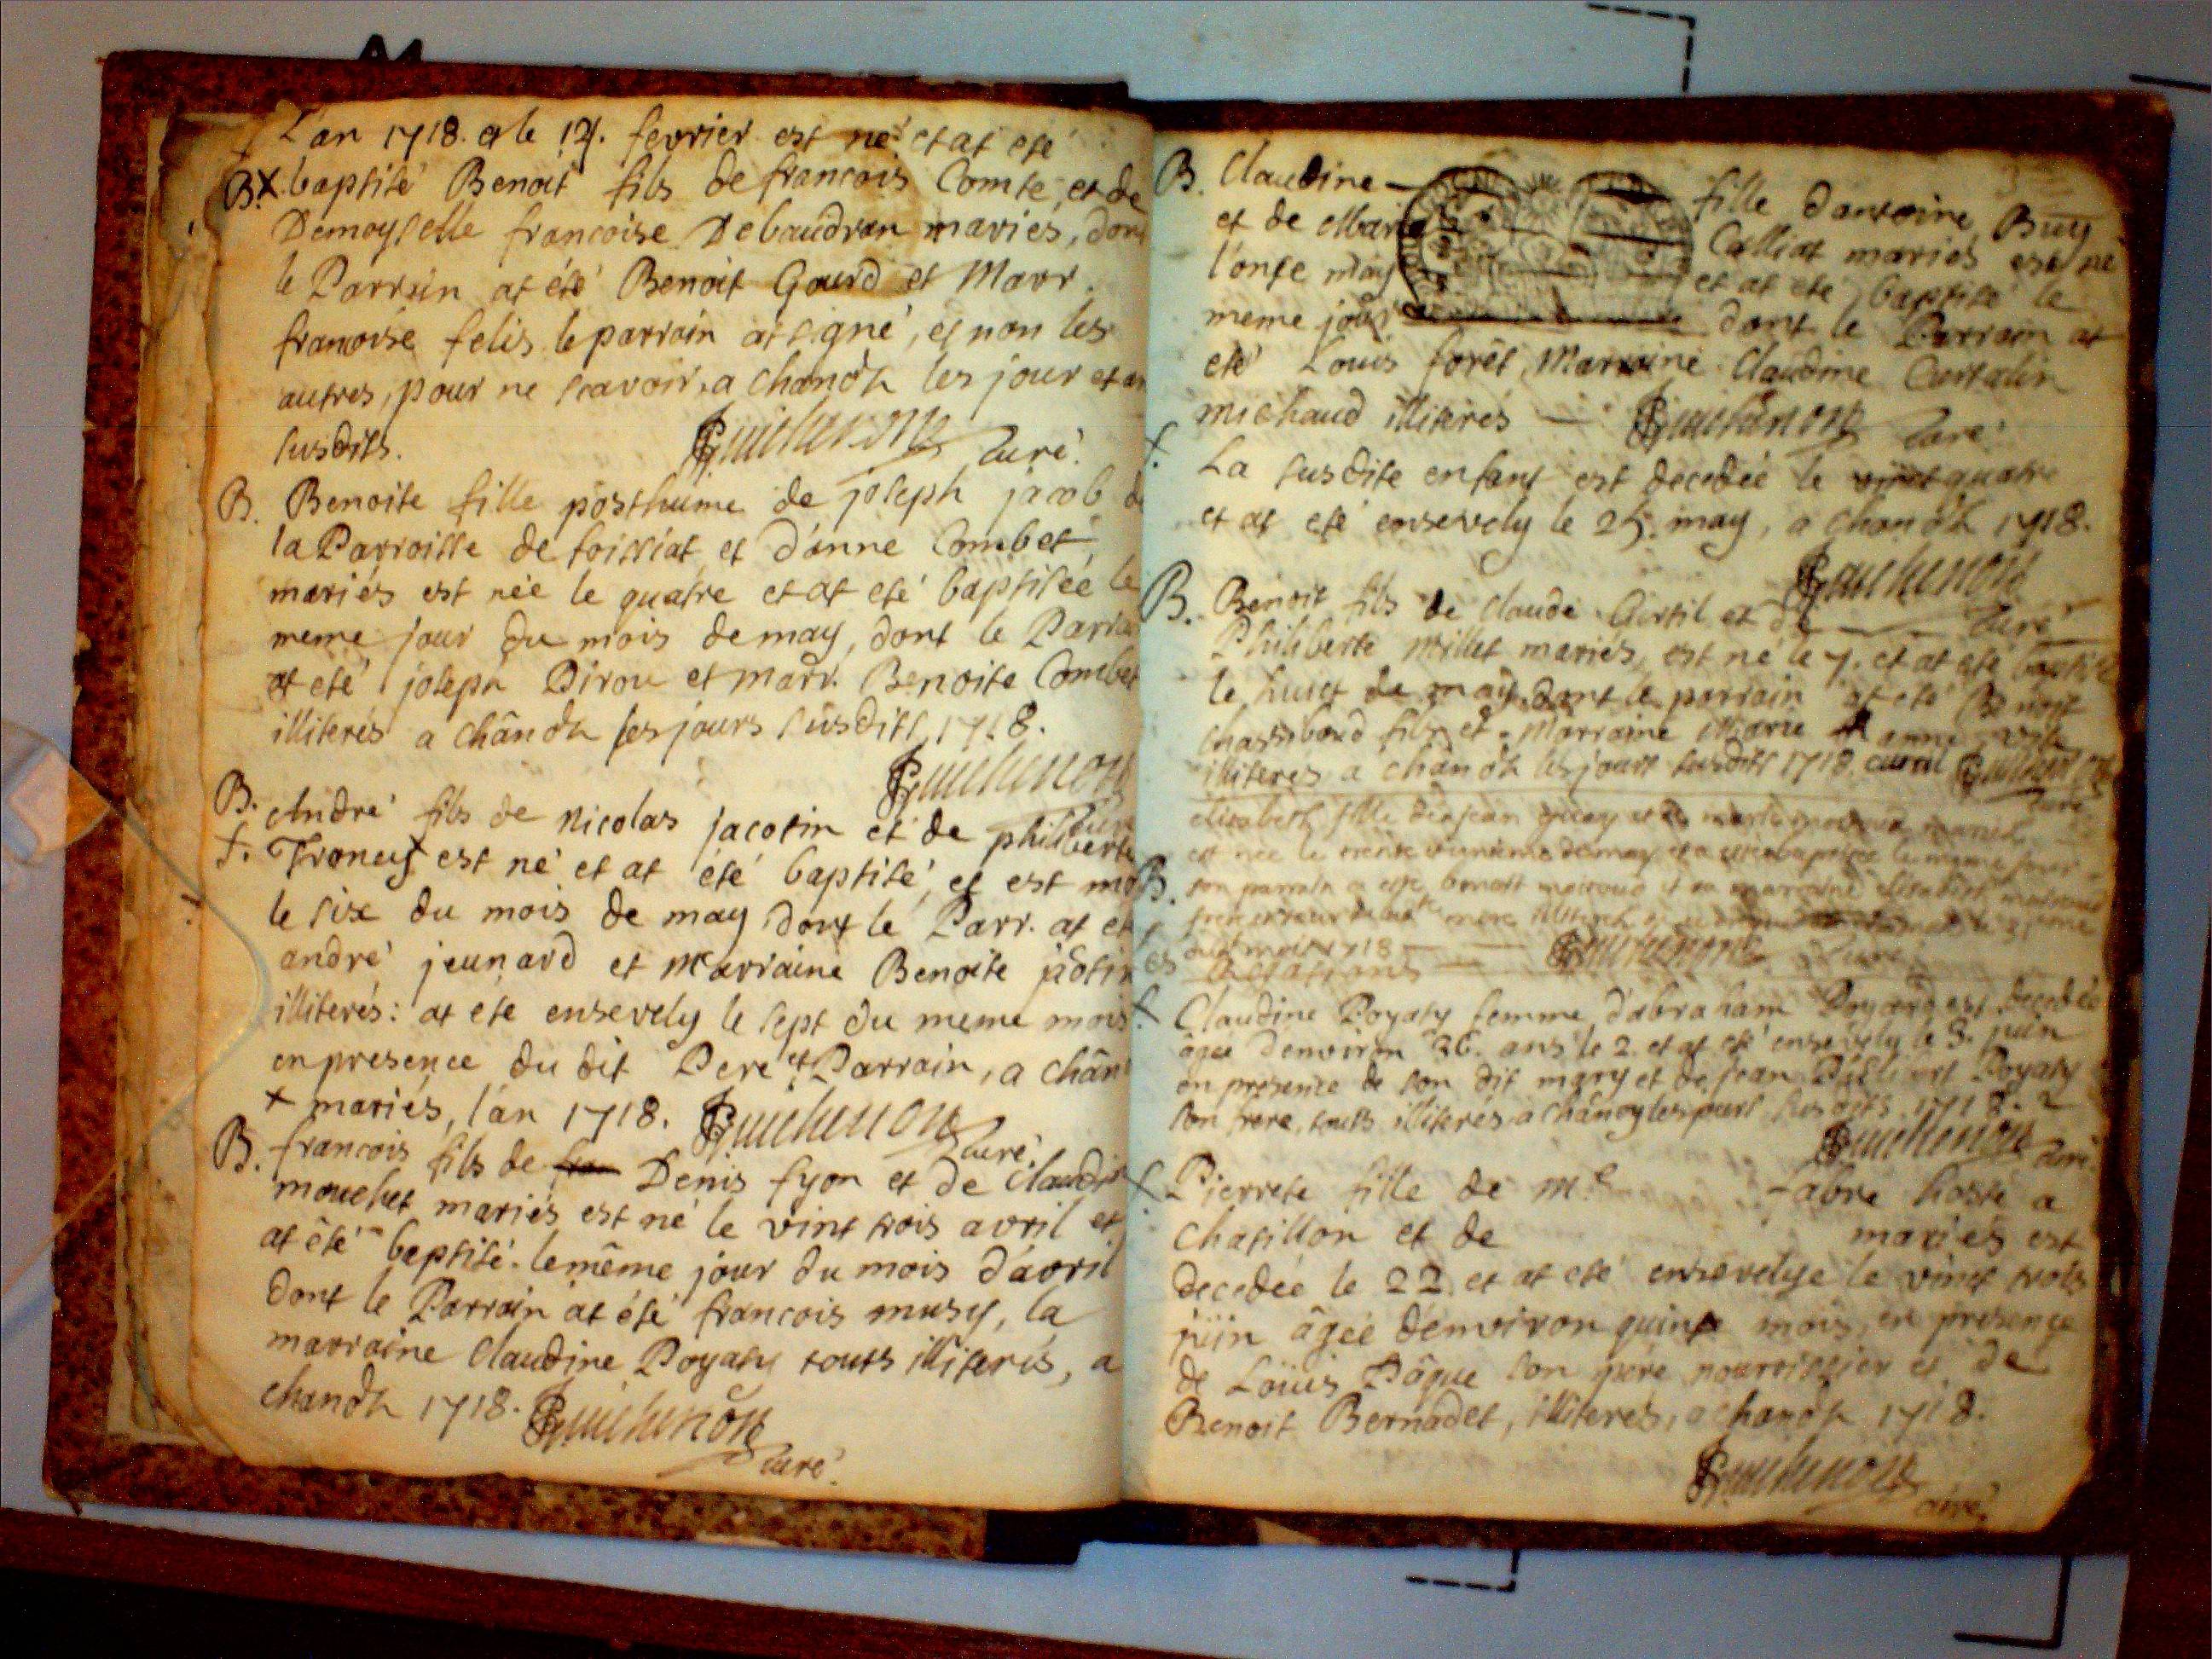 L'an 1718. et le 14. fevrier est né et at eté
B. X baptisé Benoit fils de francois Comte, et de
Demoyselle francoise Debaudran mariés, dont
le Parrain at été Benoit Gourd et Marr.
francoise felis le parrain at signé, et non les
autres, pour ne scavoir, a chanoz les jour et an
susdits. Guichenon Curé.
B. Benoite fille posthume de joseph jacob de
la Parroisse de foissiat et d'anne Combet
mariés est née le quatre et at eté baptisée le
meme jour du mois de may, dont le Parrain
at eté joseph Pirou et marr. Benoite Combet
illiterés a chânoz les jours susdits 1718.
Guichenon
B. André fils de Nicolas jacotin et de philiberte
f. Troncy + est né et at été baptisé, et est mort
le six du mois de may dont le Parr. at eté
andré jeunard et Marraine Benoite jacotin
illiterés: at eté ensevely le sept du meme mois
en presence du dit Pere et Parrain, a chân
+ mariés, l'an 1718. Guichenon Curé.
B. francois fils de fra Denis fyon et de Claudine
mouchet mariés est né le vint trois avril et
at êté baptisé le même jour du mois d'avril
dont le Parrain at été francois musy, la
marraine Claudine Poyaty touts illiterés, a
chanoz 1718. Guichenon
Curé.
B. Claudine fille dantoine Buy
et de Marie Calliat mariés est né
l'onse may et at eté baptisé le
meme jour dont le Parrain at
eté Louis forêt Marraine Claudine Curtalin
michaud illiterés — Guichenon Curé.
f. La susdite enfant est decedée le vint quatre
et at eté ensevely le 25. may, a chanoz 1718.
Guichenon
B. Benoit fils de claude Curtil et de Curé
Philiberte Millet mariés, est né le 7. et at eté baptisé
le huict de may dont le parrain at eté Benoit
fils et Marraine Marie anne
illiterés a chânoz les jours susdits 1718. Guichenon
Curé
elisabeth fille de jean et de mariés
est née le trente unième de may et a esté baptisée le mesme jour
B. son parrain a esté benoit moiroud et sa marraine elisabeth moiroud
1718 — Guichenon Curé
f. Claudine Poyaty femme d'abraham est decedée
âgée denviron 36. ans le 2. et at eté ensevely le 3. juin
en presence de son dit mary et de jean Poyaty
son frere, touts illiterés a chânoz les jours susdits 1718.
Guichenon Curé.
f. Pierrete fille de Me fabre hoste a
chatillon et de mariés est
decedée le 22 et at eté ensevelye le vint trois
juin âgée denviron quinse mois, en presence
de Loüis Pâque son pere nourrissier et de
Benoit Bernadet, illiterés, a chanoz 1718.
Guichenon
Curé.